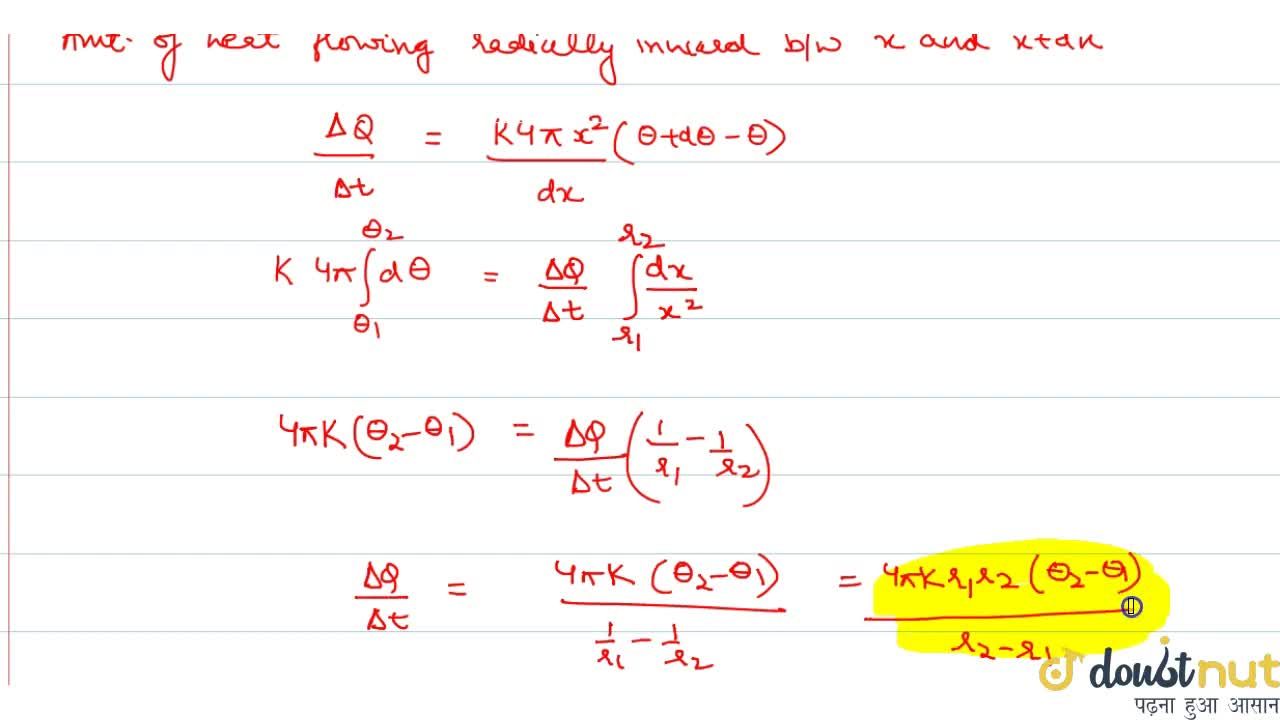 Amt. of heat flowing radially inward b/w x and x+dx
ΔQ/Δt = K4πx²(θ+dθ-θ)/dx
K 4π∫_θ1^θ2 dθ = ΔQ/Δt ∫_r1^r2 dx/x²
4πK(θ2-θ1) = ΔQ/Δt (1/r1 - 1/r2)
ΔQ/Δt = 4πK(θ2-θ1)/(1/r1 - 1/r2) = 4πKr1r2(θ2-θ1)/(r2-r1)
doubtnut
पढ़ना हुआ आसान